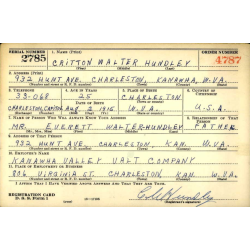 SERIAL NUMBER 1. NAME (Print) ORDER NUMBER
2785 CRITTON WALTER HUNDLEY 4787
2. ADDRESS (Print)
932 HUNT AVE. CHARLESTON, KANAWHA, W.VA.
3. TELEPHONE 4. AGE IN YEARS 5. PLACE OF BIRTH 6. COUNTRY OF CITIZENSHIP
33-068 25 CHARLESTON
DATE OF BIRTH
CHARLESTON, CAPITOL AUG. 2 1915 W.VA. U.S.A.
7. NAME OF PERSON WHO WILL ALWAYS KNOW YOUR ADDRESS 8. RELATIONSHIP OF THAT PERSON
MR. EVERETT WALTER HUNDLEY FATHER
9. ADDRESS OF THAT PERSON
932 HUNT AVE. CHARLESTON, KAN. W.VA.
10. EMPLOYER'S NAME
KANAWHA VALLEY VALT COMPANY
11. PLACE OF EMPLOYMENT OR BUSINESS
806 VIRGINIA ST. CHARLESTON, KAN. W.VA.
I AFFIRM THAT I HAVE VERIFIED ABOVE ANSWERS AND THAT THEY ARE TRUE.
REGISTRATION CARD
D. S. S. Form 1